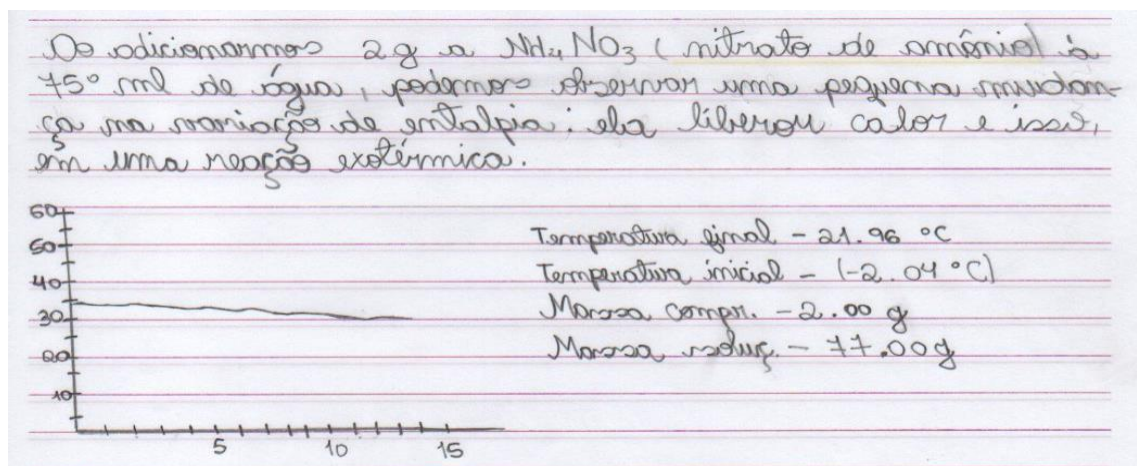 Ao adicionarmos 2 g a NH₄ NO₃ (nitrato de amônio) à
75° ml de água, podemos observar uma pequena mudan-
ça na variação de entalpia: ela liberou calor e isso,
em uma reação exotérmica.
60
50
40
30
20
10
5 10 15
Temperatura final - 21.96 °C
Temperatura inicial - (-2.04 °C)
Massa compr. - 2.00 g
Massa soluç. - 77.00g